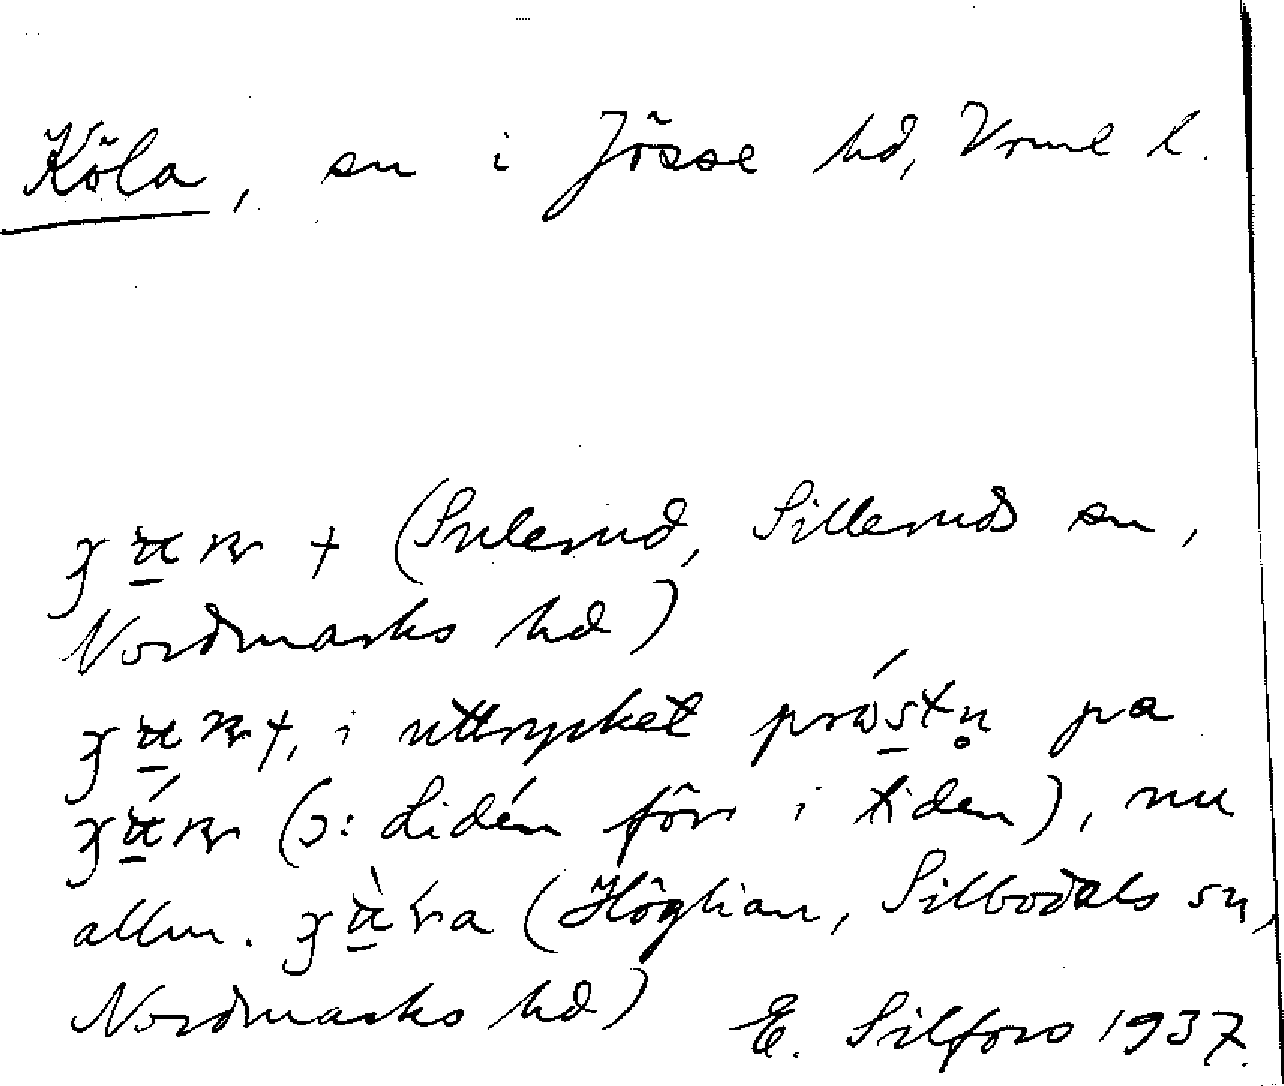 Köla, sn i Jösse hd, Vrml l.
† (Sulerud, Silleruds sn,
Nordmarks hd)
†, i uttrycket på
(ɔ: Lidén förr i tiden), nu
allm. (Höglian, Silbodals sn,
Nordmarks hd)
E. Silfors 1937.